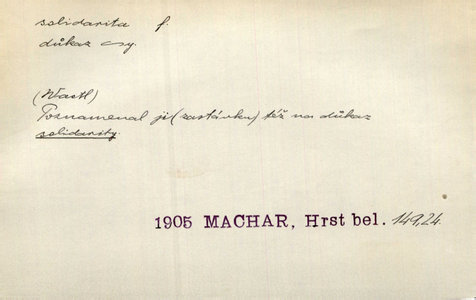 solidarita f.
důkaz csy.
(Wastl)
Poznamenal ji (zastávku) též na důkaz
solidarity.
1905 MACHAR, Hrst bel. 149,24.